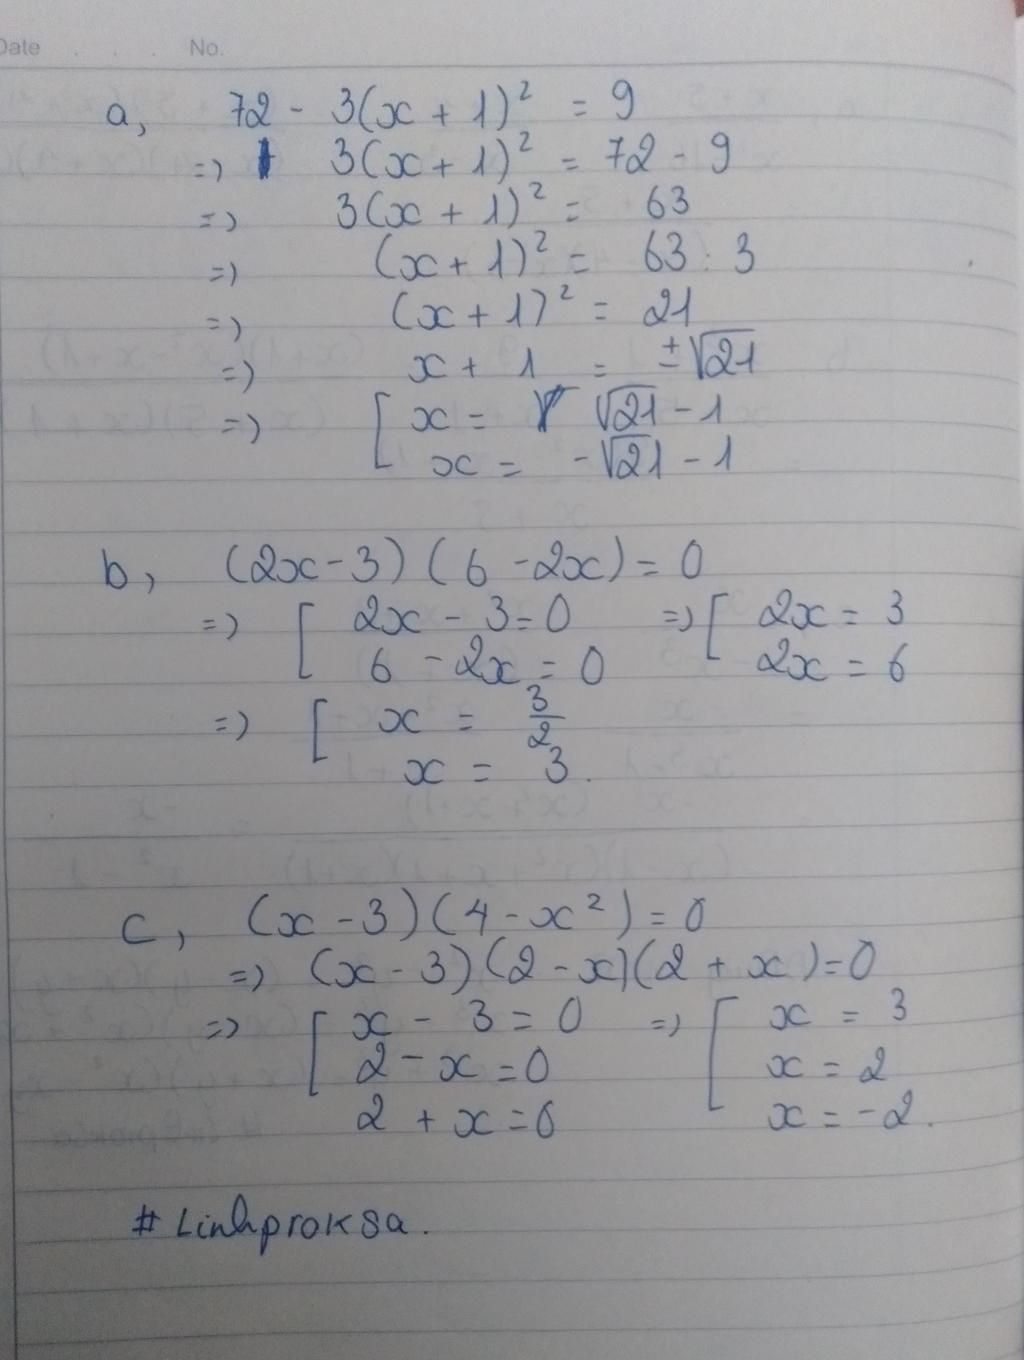 Date . . . No.
a, 72 - 3(x + 1)² = 9
=> 3(x + 1)² = 72 - 9
=> 3(x + 1)² = 63
=> (x + 1)² = 63 : 3
=> (x + 1)² = 21
=> x + 1 = ±√21
=> [ x = √21 - 1
x = -√21 - 1
b, (2x - 3)(6 - 2x) = 0
=> [ 2x - 3 = 0 => [ 2x = 3
6 - 2x = 0 2x = 6
=> [ x = 3/2
x = 3.
c, (x - 3)(4 - x²) = 0
=> (x - 3)(2 - x)(2 + x) = 0
=> [ x - 3 = 0 => [ x = 3
2 - x = 0 x = 2
2 + x = 0 x = -2.
# Linhproksa.